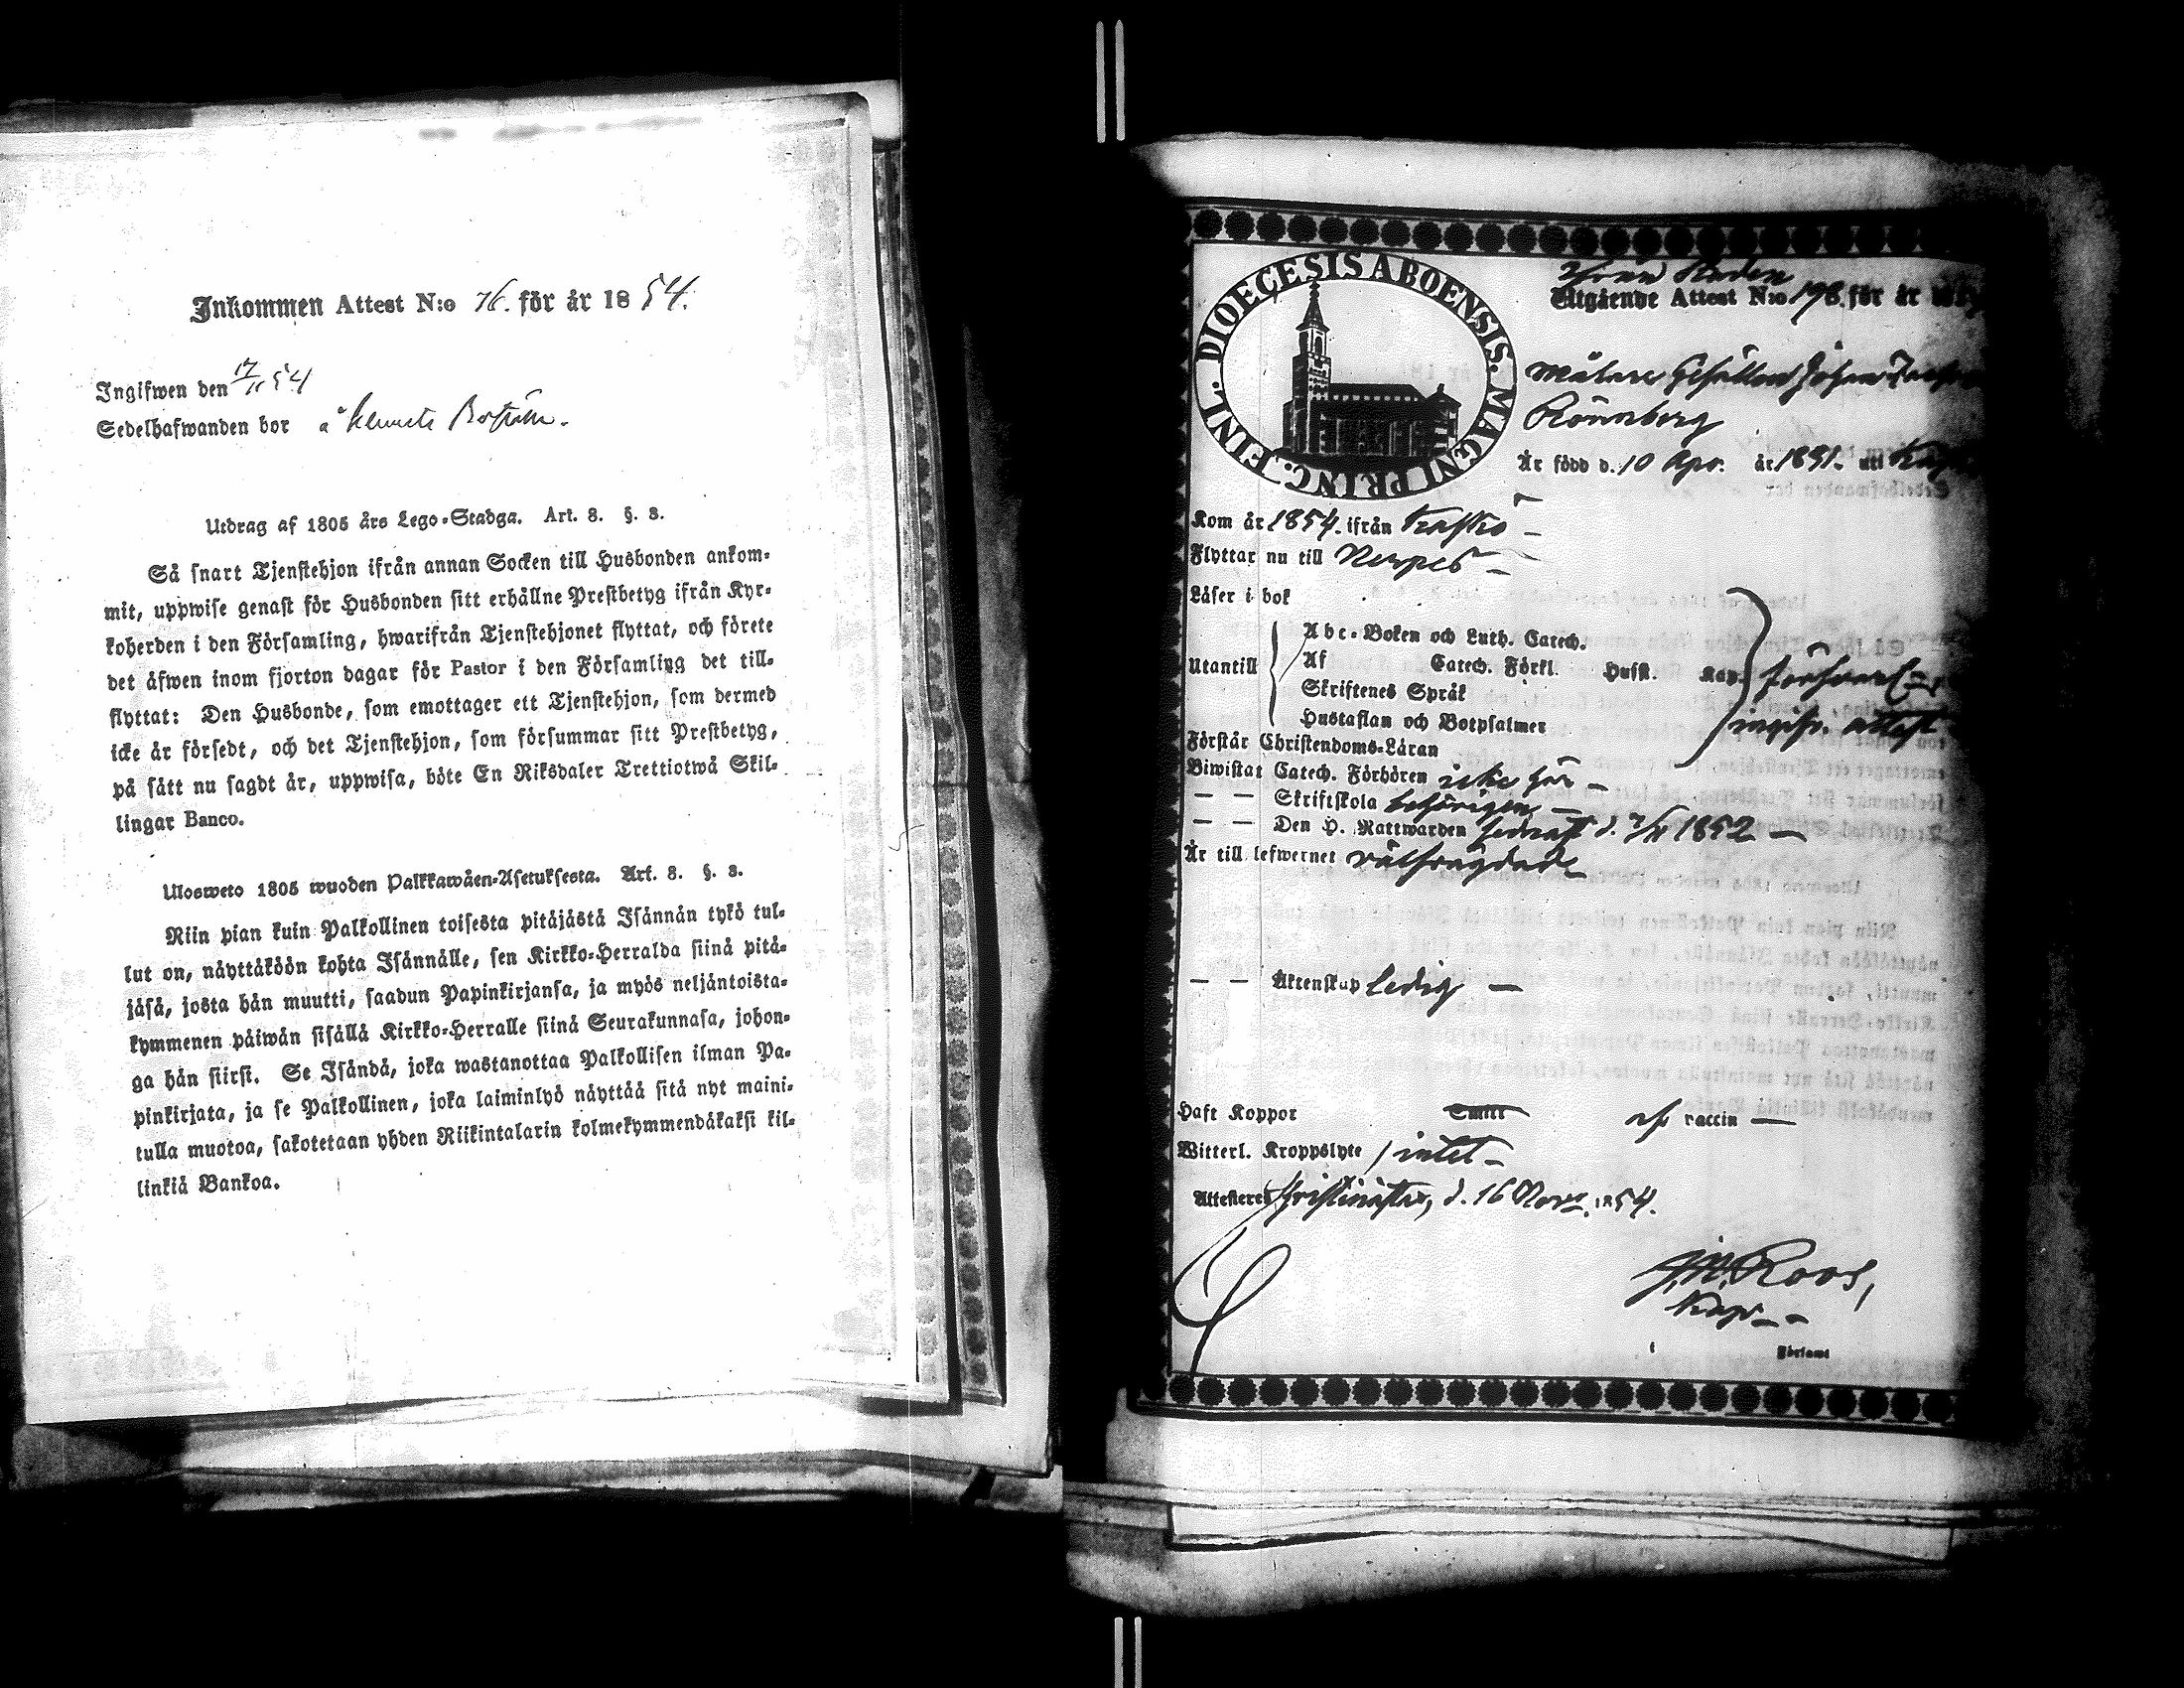 Inkommen Attest N:o 76. för år 1854.
Ingifwen den 17/11 54
Sedelhafwanden bor å
Utdrag af 1805 års Lego-Stadga. Art. 8. §. 3.
Så snart Tjenstehjon ifrån annan Socken till Husbonden ankom-
mit, uppwise genast för Husbonden sitt erhållne Prestbetyg ifrån Kyr-
koherden i den Församling, hwarifrån Tjenstehjonet flyttat, och förete
det äfwen inom fjorton dagar för Pastor i den Församling det till-
flyttat: Den Husbonde, som emottager ett Tjenstehjon, som dermed
icke är försedt, och det Tjenstehjon, som försummar sitt Prestbetyg,
på sätt nu sagdt är, uppwisa, böte En Riksdaler Trettiotwå Skil-
lingar Banco.
Ulosweto 1805 wuoden Palkkawäen-Asetuksesta. Art. 8. §. 3.
Niin pian kuin Palkollinen toisesta pitäjästä Isännän tykö tul-
lut on, näyttäköön kohta Isännälle, sen Kirkko-Herralda siinä pitä-
jäsä, josta hän muutti, saadun Papinkirjansa, ja myös neljäntoista-
kymmenen päiwän sisällä Kirkko-Herralle siinä Seurakunnasa, johon-
ga hän siirsi. Se Isändä, joka wastanottaa Palkollisen ilman Pa-
pinkirjata, ja se Palkollinen, joka laiminlyö näyttää sitä nyt maini-
tulla muotoa, sakotetaan yhden Riikintalarin kolmekymmendäkaksi kil-
linkiä Bankoa.
DIOECESIS ABOENSIS. MAGNI PRINC. FINL.
Ifrån Staden
Utgående Attest N:o 198. för år
Målare Gesällen Johan
Rönnberg
Är född d. 10 Apr. år 1831. uti
Kom år 1854. ifrån Kaskö –
Flyttar nu till Nerpes –
Läser i bok
Utantill
Abc-Boken och Luth. Catech.
Af Catech. Förkl. Husft. Kap.
Skriftenes Språk
Hustaflan och Botpsalmer
ingifv. attest
Förstår Christendoms-Läran
Biwistat Catech. Förhören icke här –
— — Skriftskola behörigen –
— — Den H. Nattwarden sednast d. 7/11 1852 –
Är till lefwernet välfrägdad
— — Äktenskap ledig –
Haft Koppor Smitt vaccin —
Witterl. Kroppslyte intet –
Attesteres Christinestad, d. 16 Nov. 1854.
J. M. Roos,
Kapl.
Församl